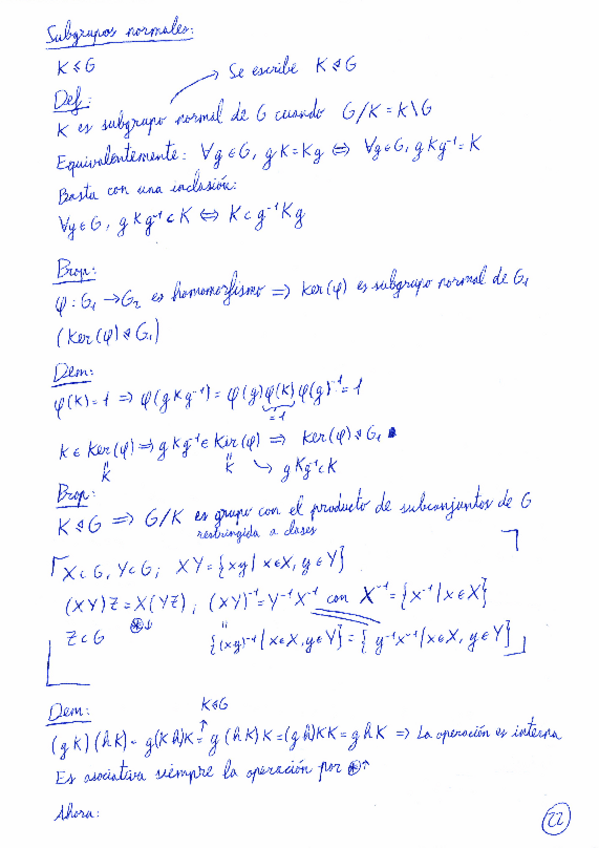 Subgrupos normales:
K ≤ G
Se escribe K ⊲ G
Def:
K es subgrupo normal de G cuando G/K = K\G
Equivalentemente: ∀g∈G, gK=Kg ⇔ ∀g∈G, gKg⁻¹=K
Basta con una inclusión:
∀g∈G, gKg⁻¹⊂K ⇔ K⊂g⁻¹Kg
Prop:
φ: G₁→G₂ es homomorfismo ⇒ Ker(φ) es subgrupo normal de G₁
(Ker(φ) ⊲ G₁)
Dem:
φ(k)=1 ⇒ φ(gkg⁻¹)=φ(g)φ(k)φ(g)⁻¹=1
=1
k∈Ker(φ)⇒gkg⁻¹∈Ker(φ) ⇒ Ker(φ)⊲G₁
K K ↳ gKg⁻¹⊂K
Prop:
K⊲G ⇒ G/K es grupo con el producto de subconjuntos de G
restringida a clases
X⊂G, Y⊂G; XY={xy/x∈X, y∈Y}
(XY)Z=X(YZ); (XY)⁻¹=Y⁻¹X⁻¹ con X⁻¹={x⁻¹/x∈X}
Z⊂G ⊛↓ {(xy)⁻¹/x∈X,y∈Y}={y⁻¹x⁻¹/x∈X, y∈Y}
K⊲G
Dem:
(gK)(hK)=g(Kh)K=g(hK)K=(gh)KK=ghK ⇒ La operación es interna
Es asociativa siempre la operación por ⊛↑
Ahora:
22